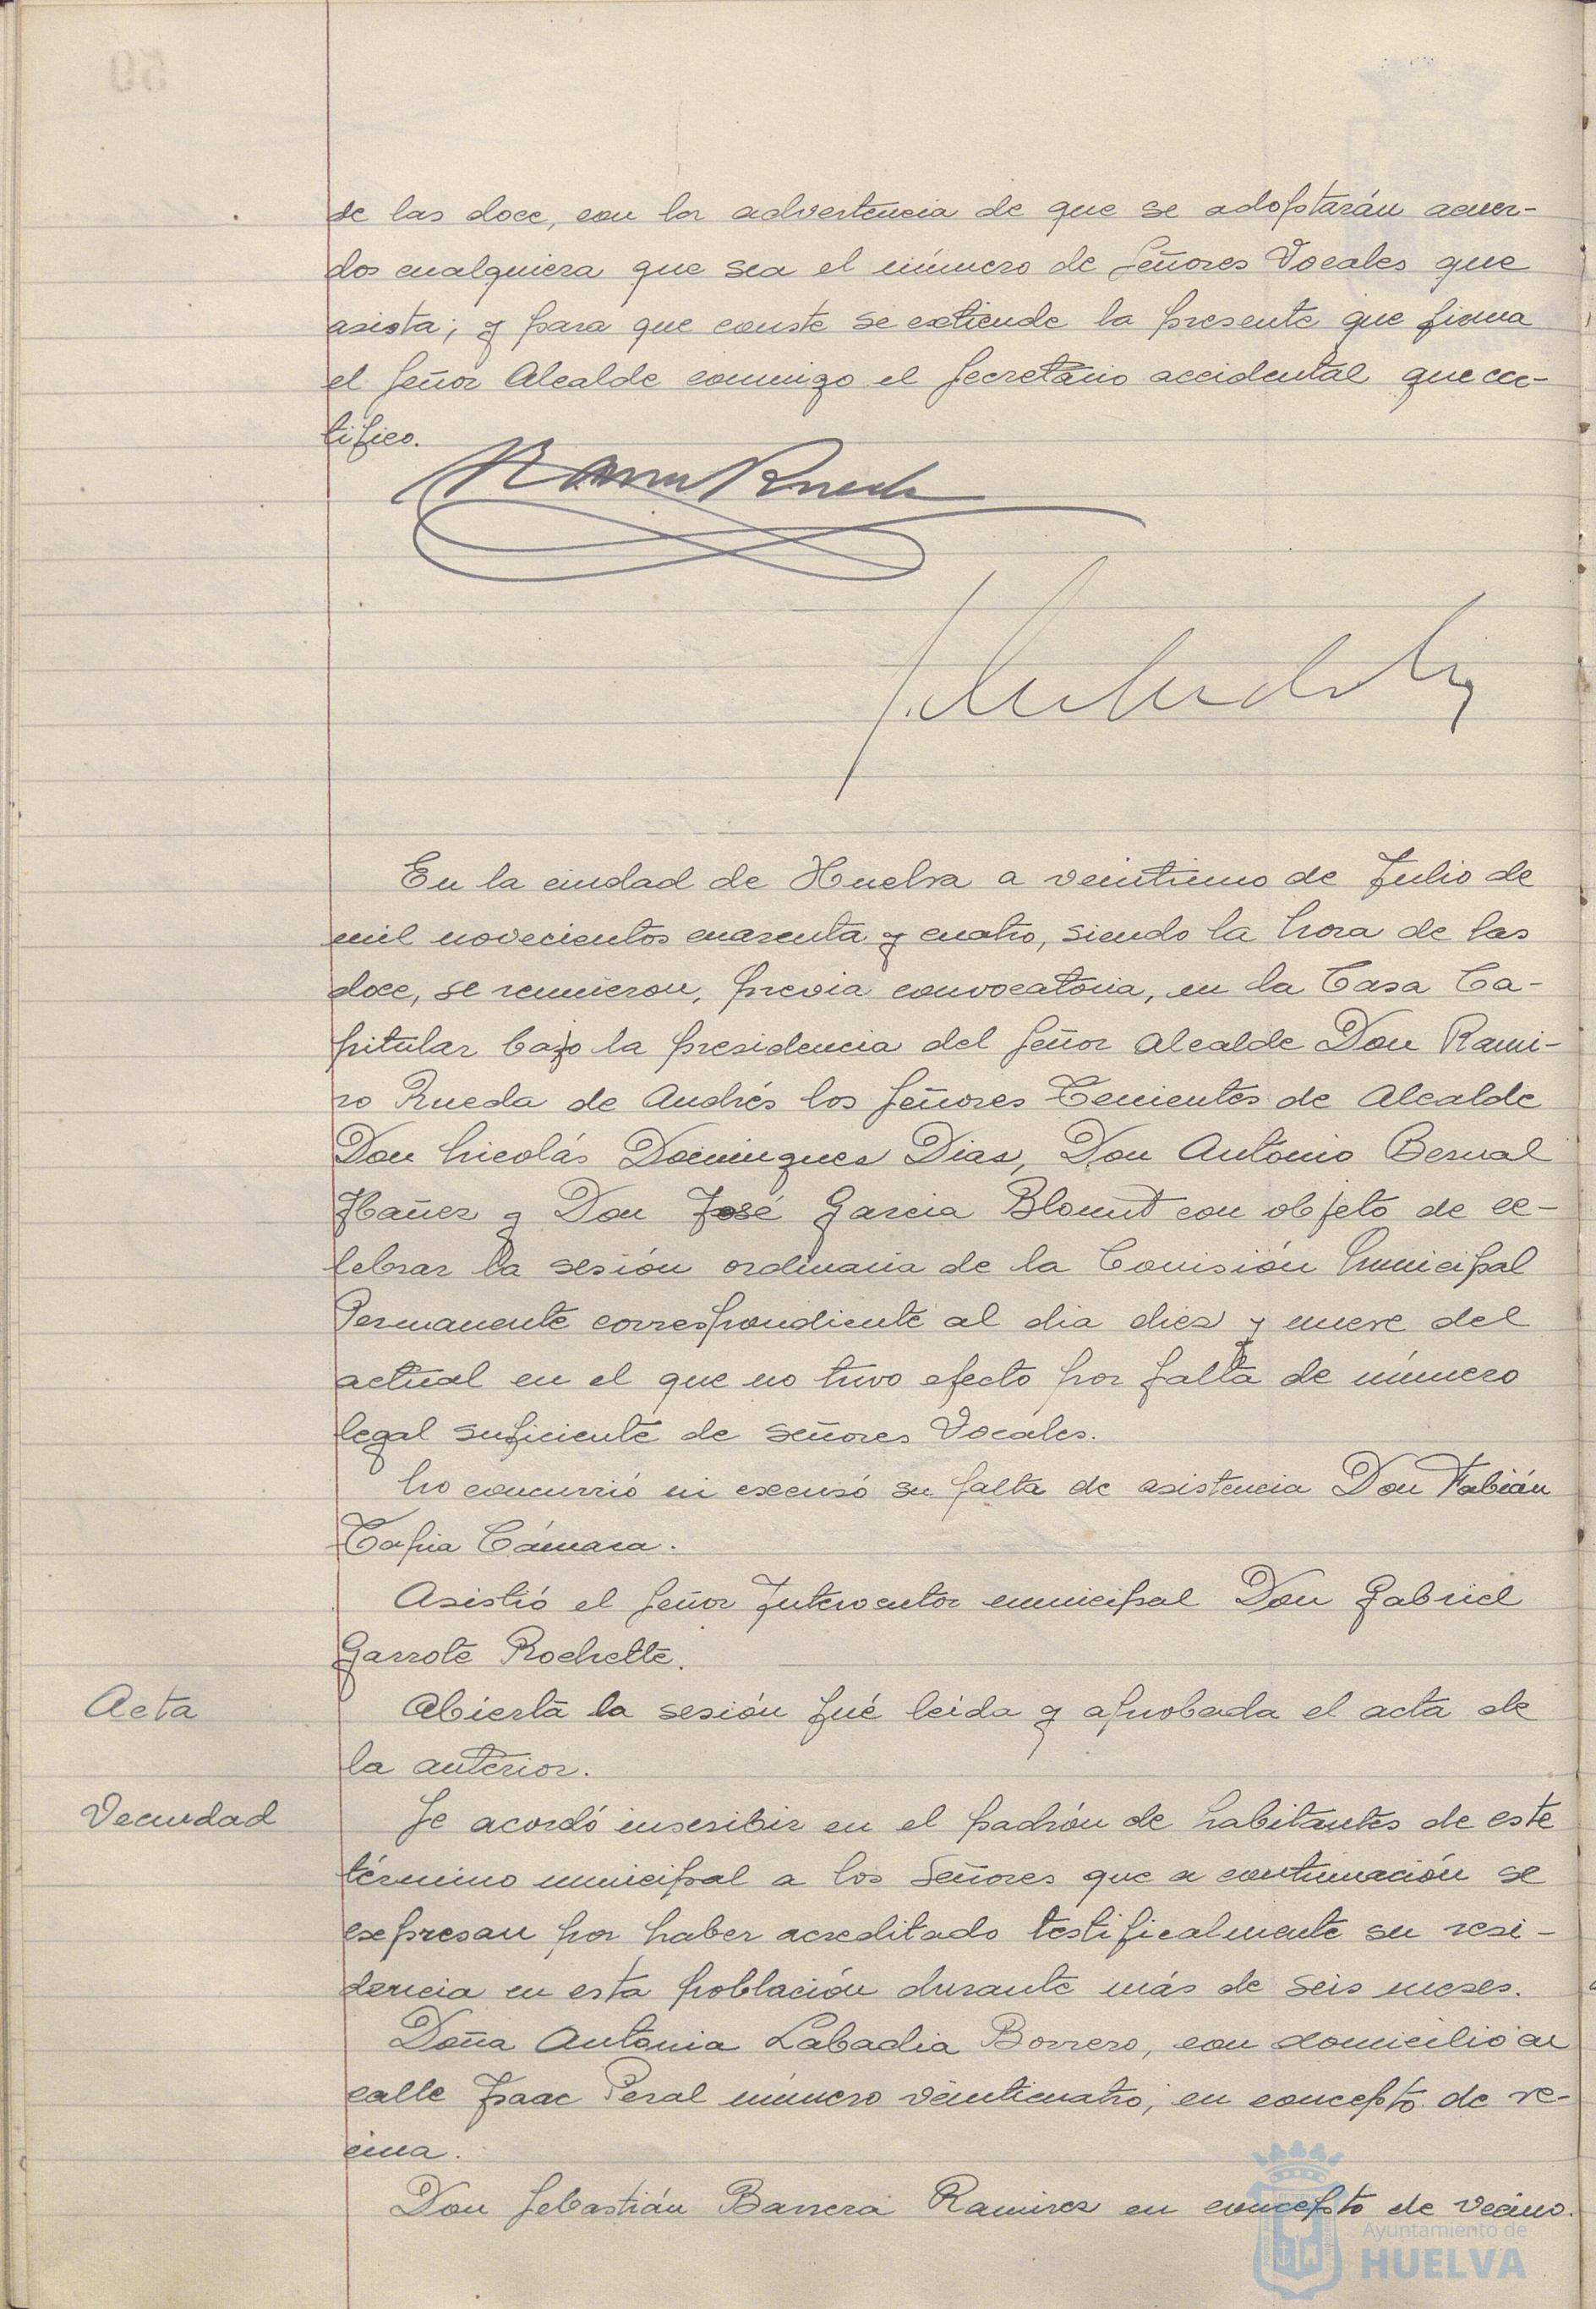 de las doce, con la advertencia de que se adoptarán acuer-
dos cualquiera que sea el número de Señores Vocales que
asista; y para que conste se extiende la presente que firma
el Señor Alcalde conmigo el Secretario accidental que cer-
tifico.
Ramiro Rueda
En la ciudad de Huelva a veintiuno de Julio de
mil novecientos cuarenta y cuatro, siendo la hora de las
doce, se reunieron, previa convocatoria, en la Casa Ca-
pitular bajo la presidencia del Señor Alcalde Don Rami-
ro Rueda de Andrés los Señores Tenientes de Alcalde
Don Nicolás Dominguez Diaz, Don Antonio Bernal
Ibañez y Don José Garcia Blount con objeto de ce-
lebrar la sesión ordinaria de la Comisión Municipal
Permanente correspondiente al dia diez y nueve del
actual en el que no tuvo efecto por falta de número
legal suficiente de señores Vocales.
No concurrió ni excusó su falta de asistencia Don Fabián
Tapia Cámara.
Asistió el Señor Interventor municipal Don Gabriel
Garrote Rochette.
Acta
Abierta la sesión fué leida y aprobada el acta de
la anterior.
Vecindad
Se acordó inscribir en el padrón de habitantes de este
término municipal a los Señores que a continuación se
expresan por haber acreditado testificalmente su resi-
dencia en esta población durante más de seis meses.
Doña Antonia Labadia Borrero, con domicilio en
calle Isaac Peral número veinticuatro, en concepto de ve-
cina.
Don Sebastián Barrera Ramirez en concepto de vecino.
Ayuntamiento de
HUELVA